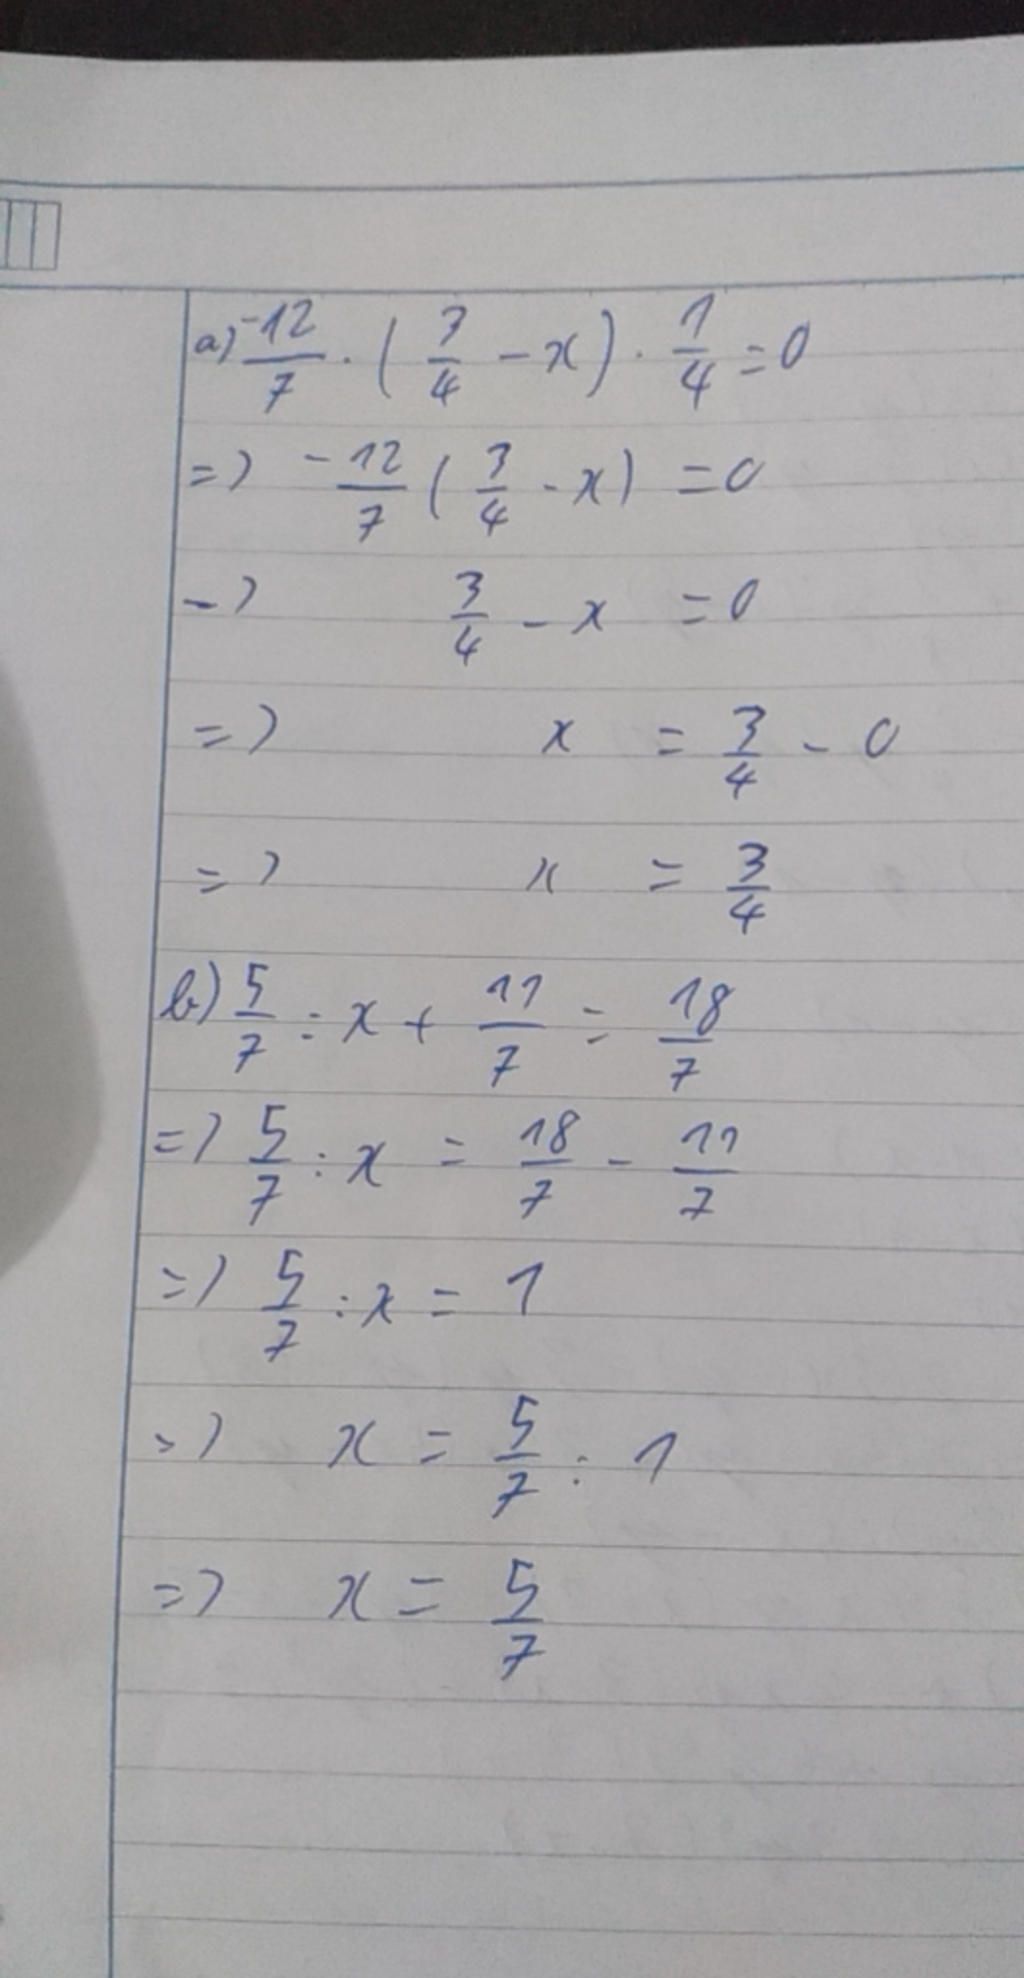 a) -12/7 . ( 3/4 - x ) . 1/4 = 0
=> -12/7 ( 3/4 - x ) = 0
-> 3/4 - x = 0
=> x = 3/4 - 0
=> x = 3/4
b) 5/7 : x + 11/7 = 18/7
=> 5/7 : x = 18/7 - 11/7
=> 5/7 : x = 1
=> x = 5/7 : 1
=> x = 5/7